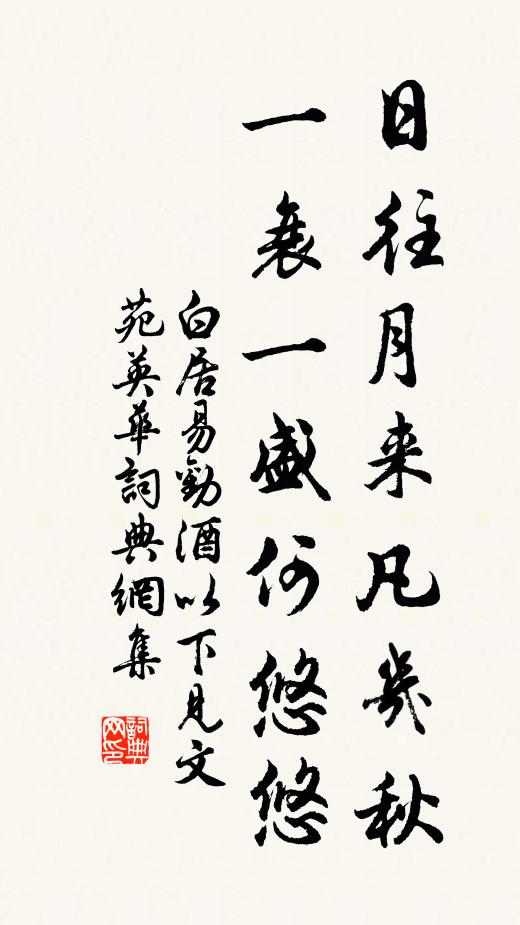 日往月来凡幾秋
一衰一盛何悠悠
白居易勸酒以下見文
苑英華詞典網集
詞典
网印